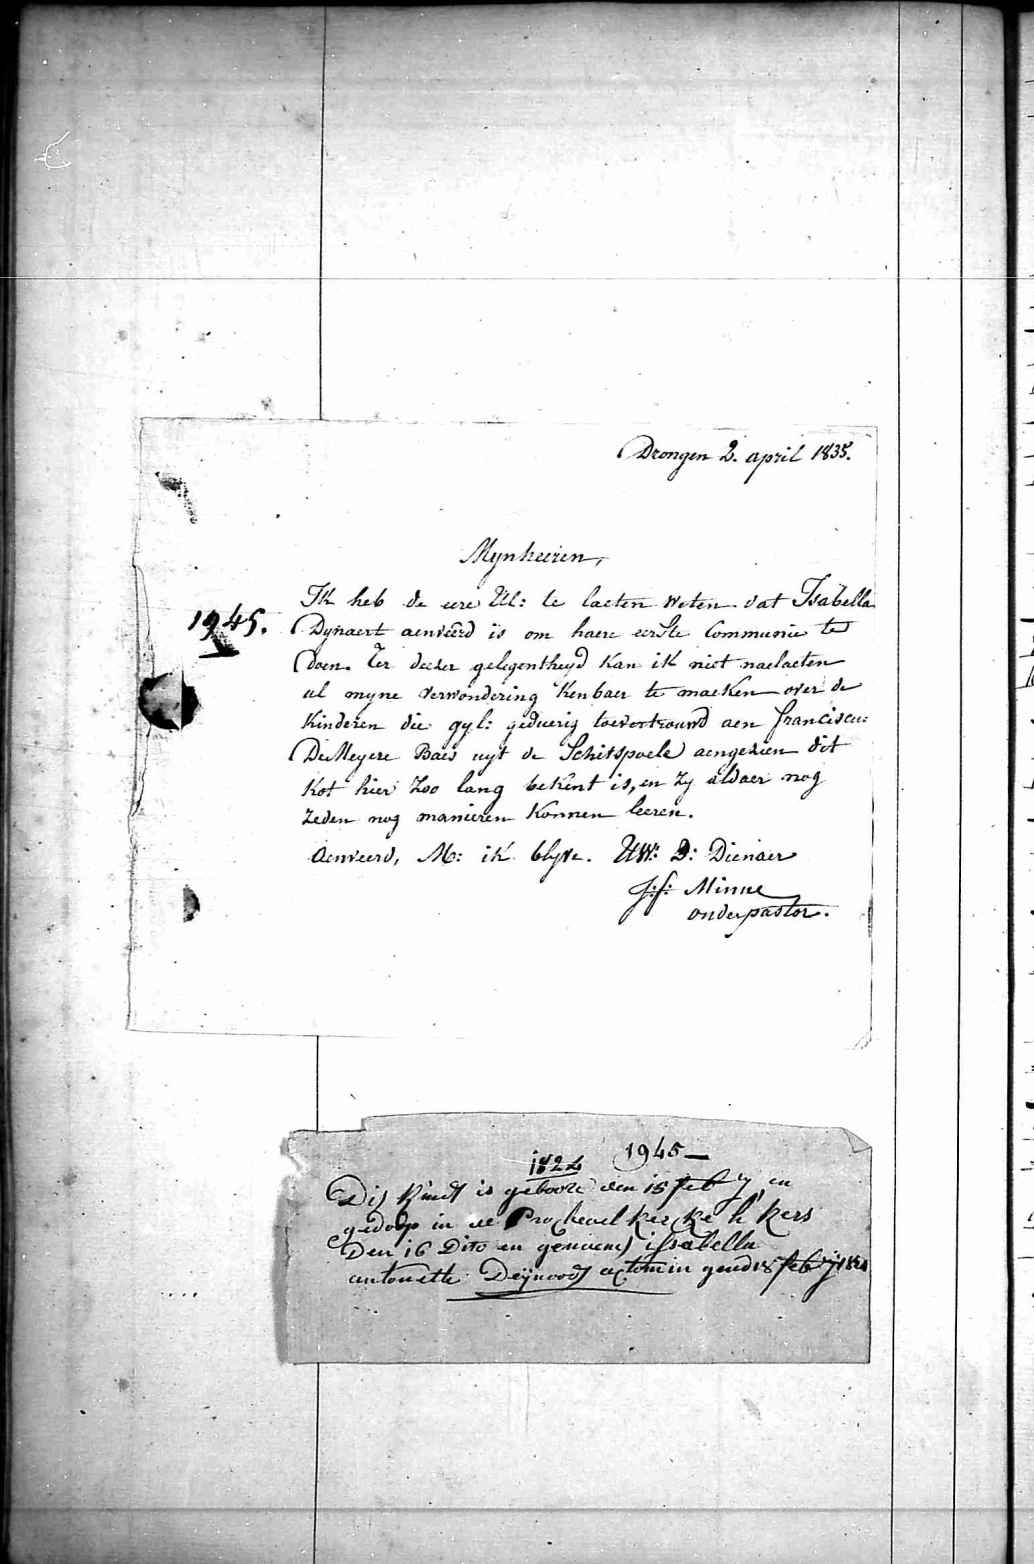 Drongen 2. april 1835.
Mynheeren,
Ik heb de eere Ul: te laeten weten dat Isabella
1945.
Dynaert aenveerd is om haere eerste Communie te
doen. Ter deeser gelegentheyd kan ik niet naelaeten
al myne verwondering kenbaer te maeken over de
kinderen die gyl: geduerig toevertrouwd aen franciscu:
DeMeyere Baes uyt de Schitspoele aengezien dit
kot hier zoo lang bekent is, en zy aldaer nog
zeden nog manieren konnen leeren.
Aenveerd, M: ik blyve. UW: D: Dienaer
J:f: Minne
onderpastor.
1945
1824
Dis kindt is geboore den 15 feb y en
gedoop in de Procheael kercke h kers
Den 16 Dito en genaemt issabella
antonette Deynoodt geud 15 feby 1824